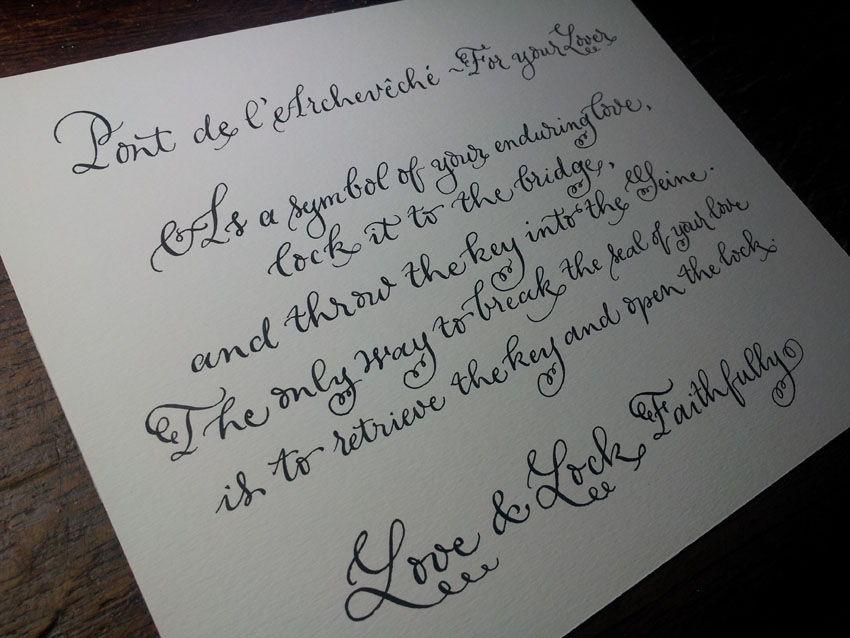 Pont de l'Archevêché ~ For your Lover
As a symbol of your enduring love,
lock it to the bridge,
and throw the key into the Seine.
The only way to break the seal of your love
is to retrieve the key and open the lock.
Love & Lock Faithfully